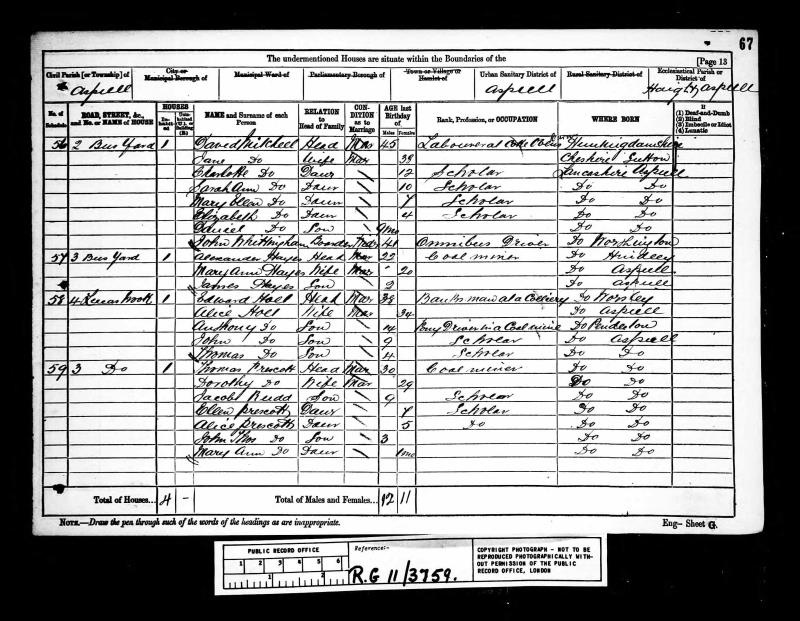 67
The undermentioned Houses are situate within the Boundaries of the
[Page 13
Civil Parish [or Township] of
Aspull
City or Municipal Borough of
Municipal Ward of
Parliamentary Borough of
Town or Village or Hamlet of
Urban Sanitary District of
Aspull
Rural Sanitary District of
Ecclesiastical Parish or District of
Haigh & Aspull
No. of Schedule
ROAD, STREET, &c., and No. or NAME of HOUSE
HOUSES
Inhabited
Uninhabited (U.), or Building (B.)
NAME and Surname of each Person
RELATION to Head of Family
CONDITION as to Marriage
AGE last Birthday of
Males
Females
Rank, Profession, or OCCUPATION
WHERE BORN
If
(1) Deaf-and-Dumb
(2) Blind
(3) Imbecile or Idiot
(4) Lunatic
56 2 Bus Yard 1 David Mitchell Head Mar 45 Labourer at Huntingdonshire
Jane Do Wife Mar 39 Cheshire Sutton
Charlotte Do Daur 12 Scholar Lancashire Aspull
Sarah Ann Do Daur 10 Scholar Do Do
Mary Ellen Do Daur 7 Scholar Do Do
Elizabeth Do Daur 4 Scholar Do Do
Daniel Do Son 9mo Do Do
John Whittingham Boarder Mar 41 Omnibus Driver Do Worthington
57 3 Bus Yard 1 Alexander Hayes Head Mar 22 Coal miner Do Hindley
Mary Ann Hayes Wife " 20 Do Aspull
James Hayes Son 2 Do Aspull
58 4 1 Edward Holt Head Mar 38 Banksman at a Colliery Do Worsley
Alice Holt Wife Mar 34 Do Aspull
Anthony Do Son 14 Pony Driver in a Coal mine Do Pendleton
John Do Son 9 Scholar Do Aspull
Thomas Do Son 4 Scholar Do Do
59 3 Do 1 Thomas Prescott Head Mar 30 Coal miner Do Do
Dorothy Do Wife Mar 29 Do Do
Jacob Rudd Son 9 Scholar Do Do
Ellen Prescott Daur 7 Scholar Do Do
Alice Prescott Daur 5 Do Do Do
John Thos Do Son 3 Do Do
Mary Ann Do Daur 1mo Do Do
Total of Houses... 4 – Total of Males and Females... 12 11
NOTE.—Draw the pen through such of the words of the headings as are inappropriate.
Eng— Sheet G.
PUBLIC RECORD OFFICE
1 2 3 4 5 6
1 2
Reference:-
R.G 11/3759.
COPYRIGHT PHOTOGRAPH - NOT TO BE
REPRODUCED PHOTOGRAPHICALLY WITH-
OUT PERMISSION OF THE PUBLIC
RECORD OFFICE, LONDON